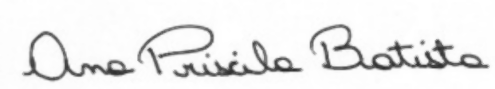 Ana Priscila Batista